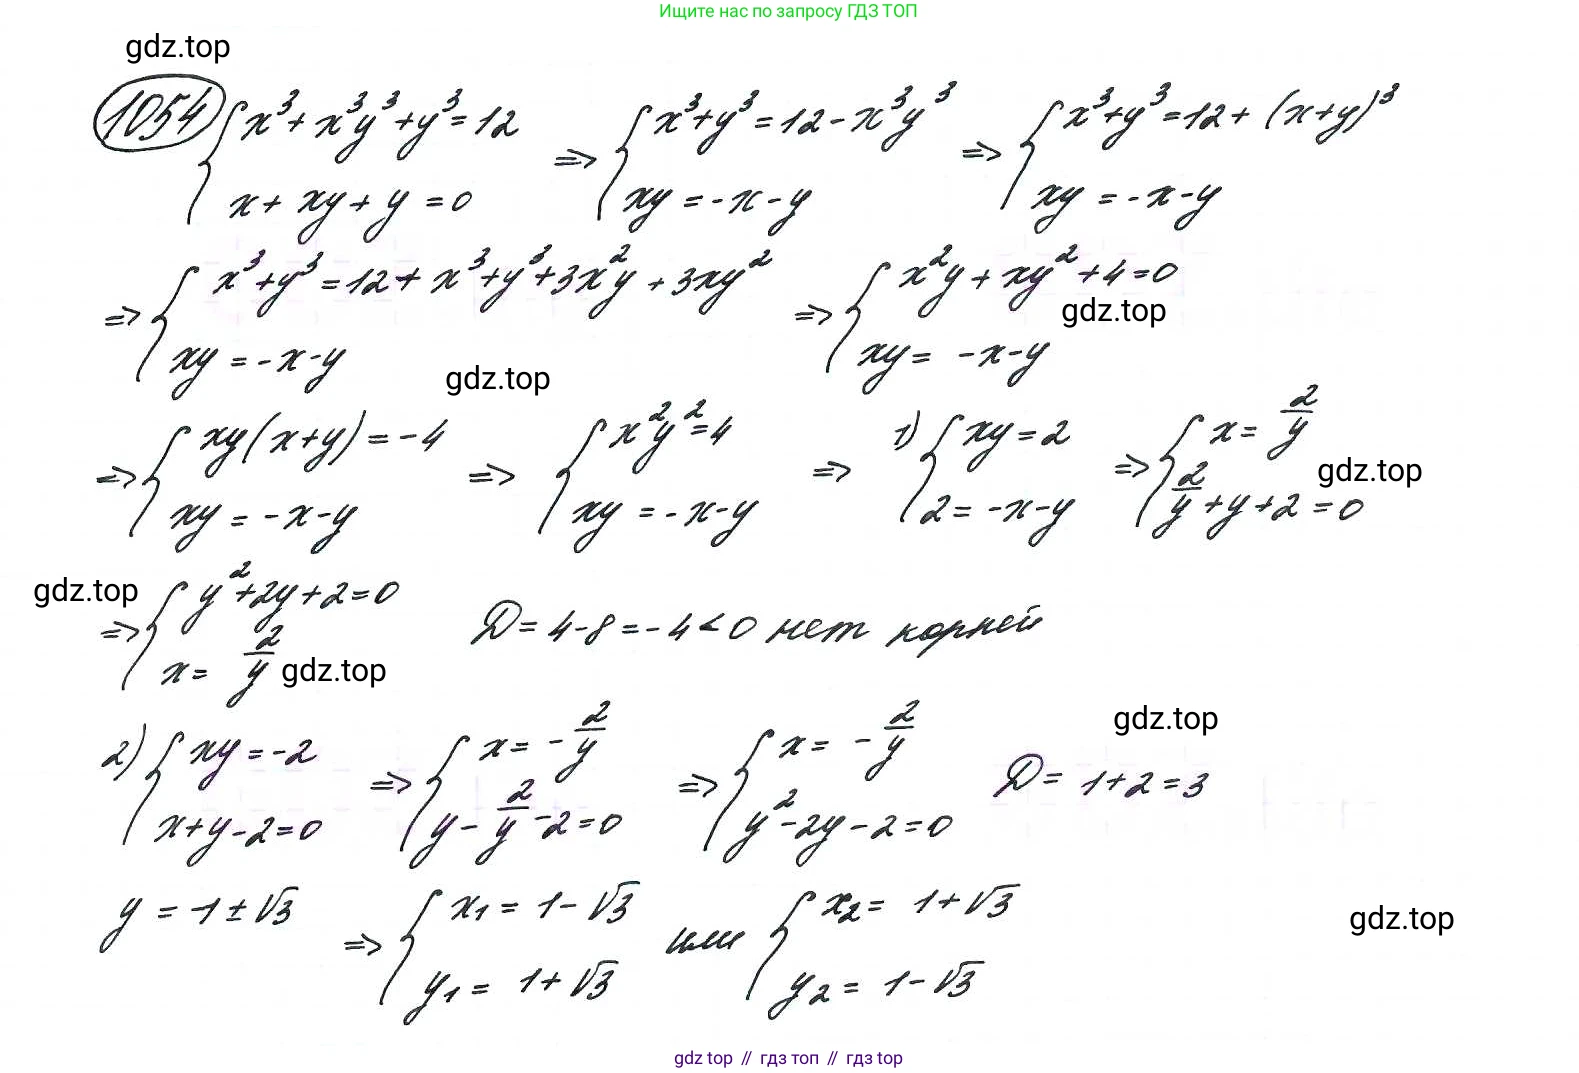 Ищите нас по запросу ГДЗ ТОП
gdz.top
1054 { x³ + x³y³ + y³ = 12 ; x + xy + y = 0 => { x³ + y³ = 12 - x³y³ ; xy = -x - y => { x³ + y³ = 12 + (x + y)³ ; xy = -x - y
=> { x³ + y³ = 12 + x³ + y³ + 3x²y + 3xy² ; xy = -x - y => { x²y + xy² + 4 = 0 ; xy = -x - y
gdz.top
gdz.top
=> { xy(x + y) = -4 ; xy = -x - y => { x²y² = 4 ; xy = -x - y => 1) { xy = 2 ; 2 = -x - y => { x = 2/y ; 2/y + y + 2 = 0
gdz.top
gdz.top
=> { y² + 2y + 2 = 0 ; x = 2/y D = 4 - 8 = -4 < 0 нет корней
gdz.top
gdz.top
2) { xy = -2 ; x + y - 2 = 0 => { x = -2/y ; y - 2/y - 2 = 0 => { x = -2/y ; y² - 2y - 2 = 0 D = 1 + 2 = 3
y = 1 ± √3 => { x₁ = 1 - √3 ; y₁ = 1 + √3 или { x₂ = 1 + √3 ; y₂ = 1 - √3
gdz.top
gdz top // гдз топ // гдз top